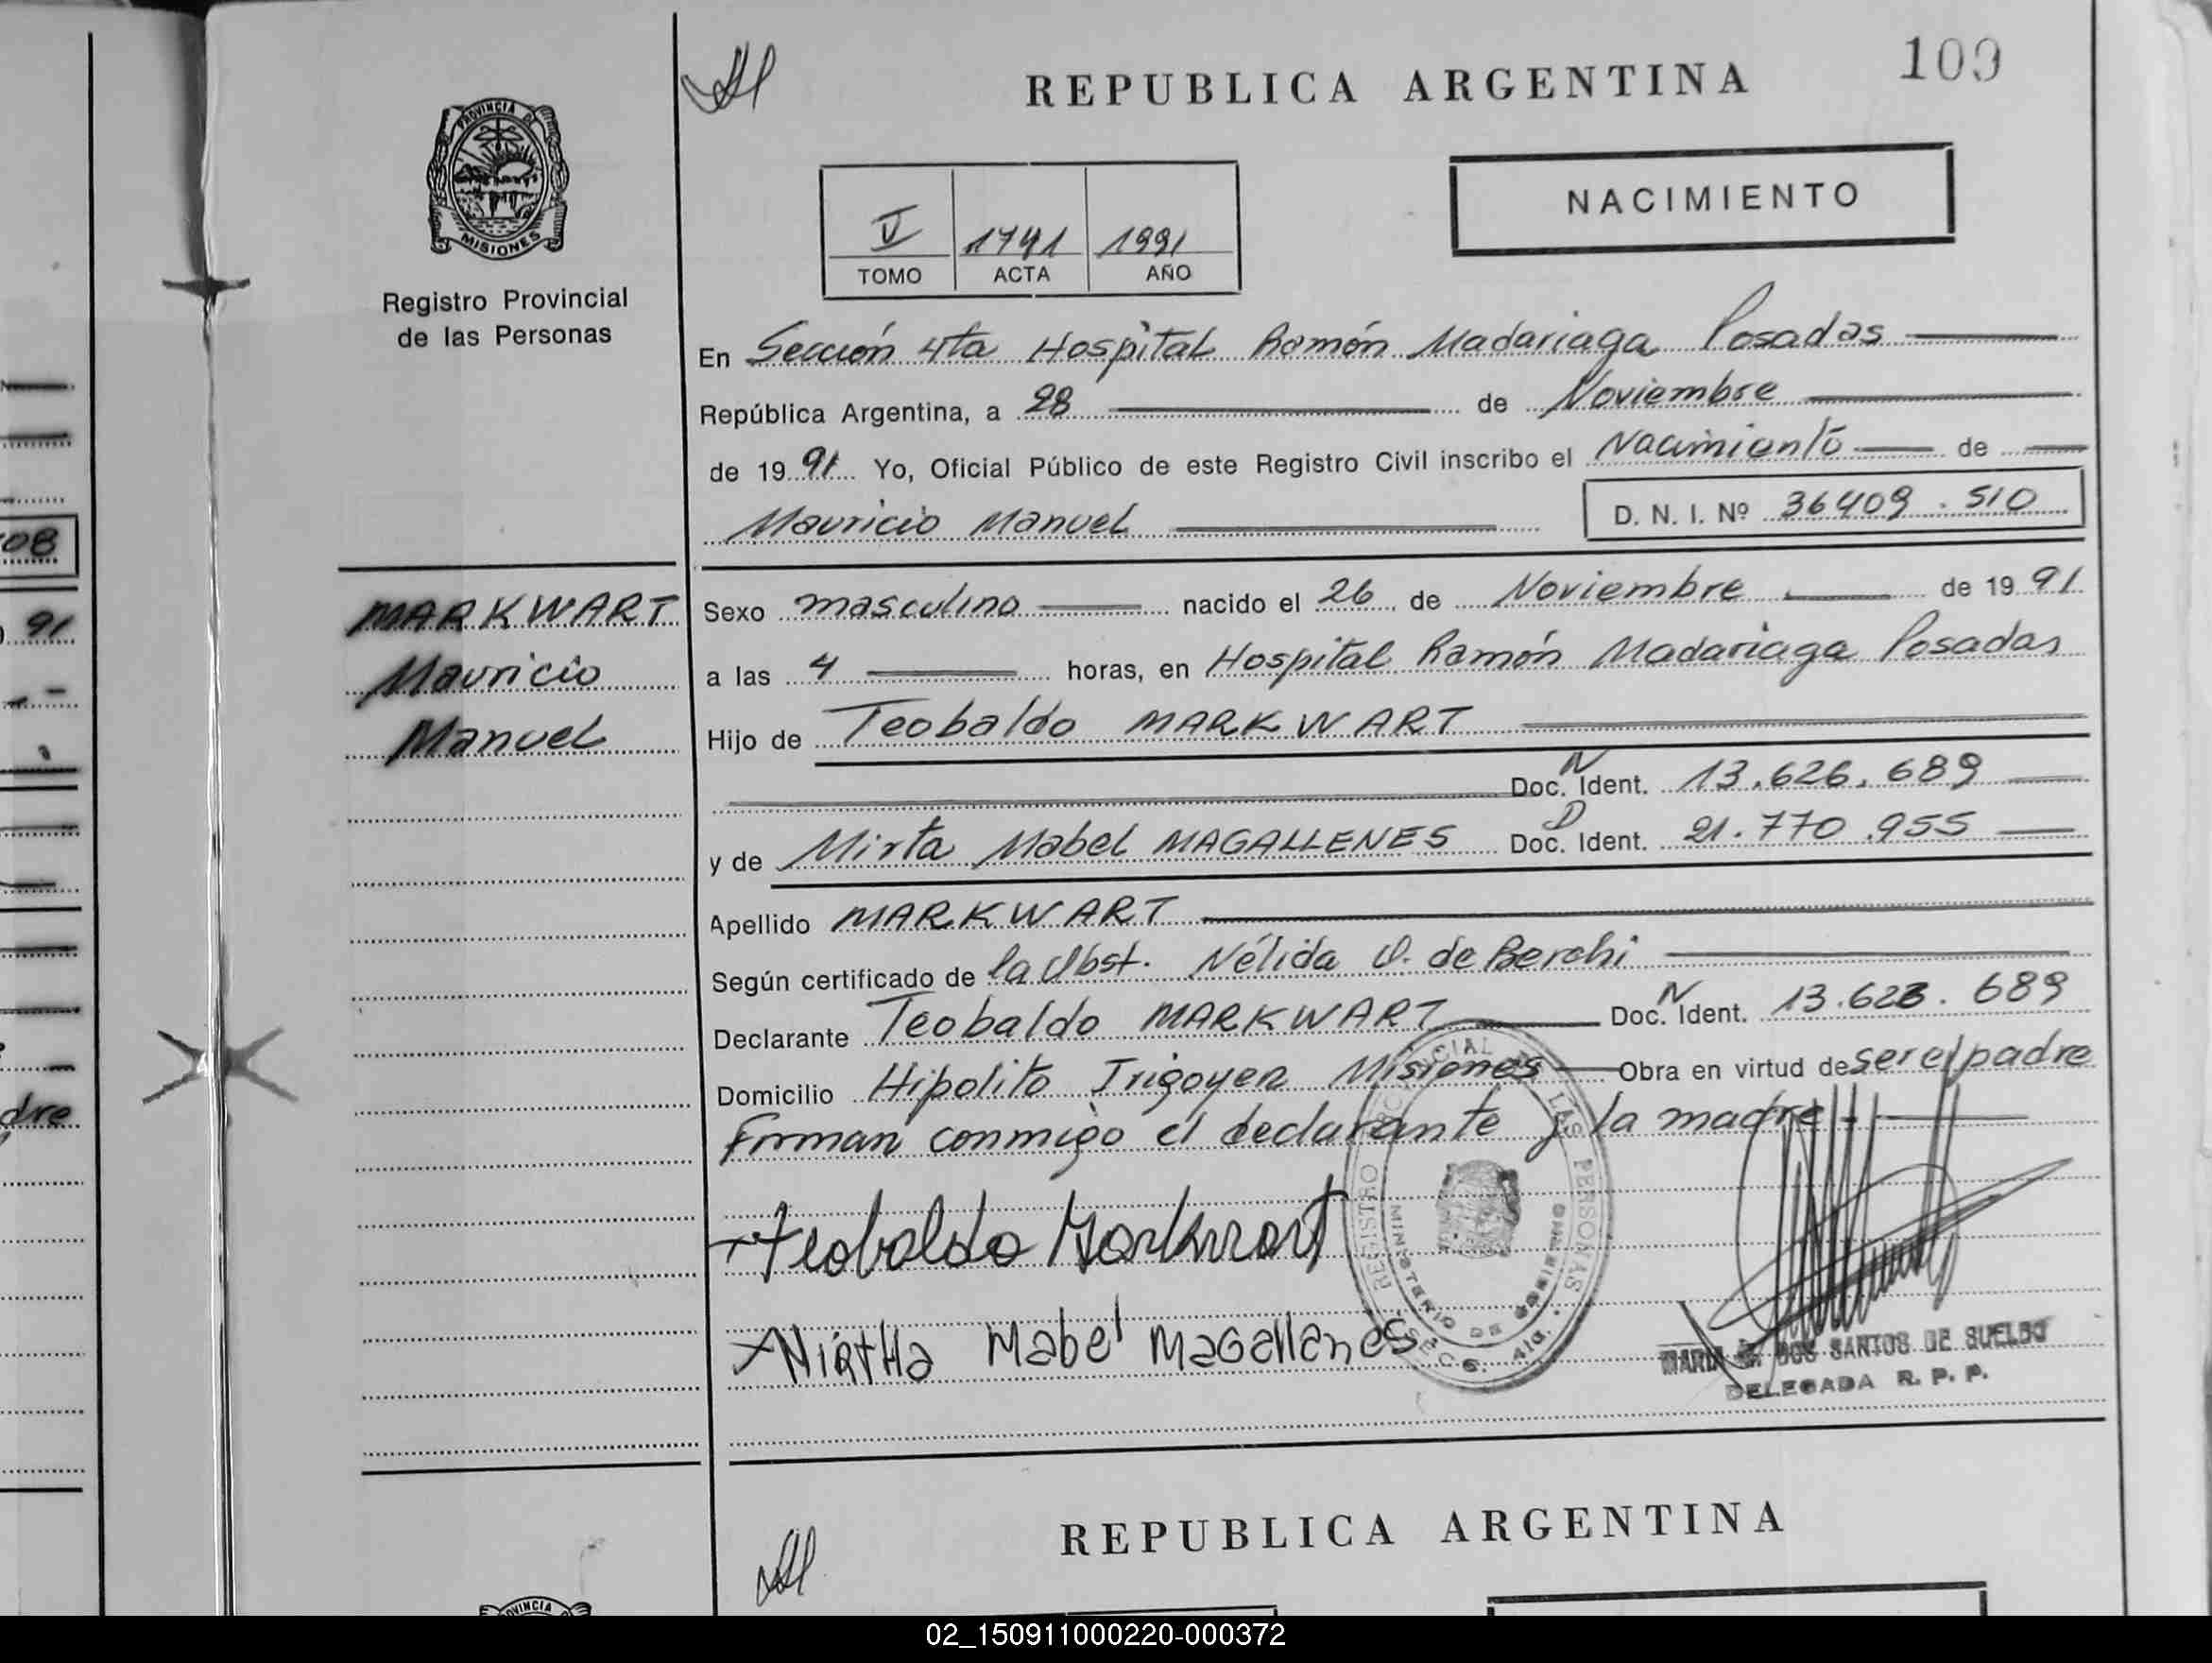 109
REPUBLICA ARGENTINA
PROVINCIA DE
MISIONES
Registro Provincial
de las Personas
NACIMIENTO
V 1741 1991
TOMO ACTA AÑO
En Sección 4ta Hospital Ramón Madariaga Posadas
República Argentina, a 28 de Noviembre
de 1991 Yo, Oficial Público de este Registro Civil inscribo el Nacimiento de
Mauricio Manuel D. N. I. Nº 36409.510
MARKWART
Mauricio
Manuel
Sexo masculino nacido el 26 de Noviembre de 1991
a las 4 horas, en Hospital Ramón Madariaga Posadas
Hijo de Teobaldo MARKWART
N
Doc. Ident. 13.626.689
D
y de Mirta Mabel MAGALLENES Doc. Ident. 21.770.955
Apellido MARKWART
Según certificado de la Obst. Nélida O. de Berchi
N
Declarante Teobaldo MARKWART Doc. Ident. 13.626.689
Domicilio Hipolito Irigoyen Misiones Obra en virtud de ser el padre
Firman conmigo el declarante y la madre.-
Teobaldo Markwart
Mirtha Mabel Magallenes
REGISTRO PROVINCIAL DE LAS PERSONAS
MINISTERIO DE GOBIERNO
MARIA DOS SANTOS DE SUELDO
DELEGADA R. P. P.
REPUBLICA ARGENTINA
PROVINCIA
08
91
dre
02_150911000220-000372